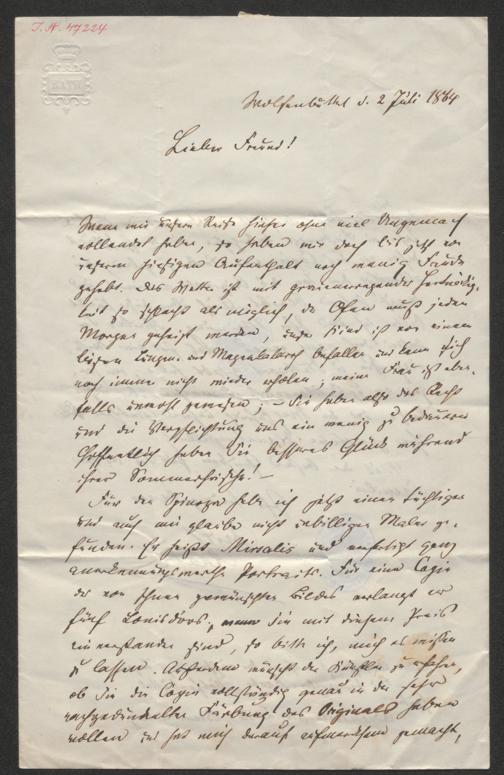 I. N. 47224
BATH
Wolfenbüttel d. 2 Juli 1864
Lieber Freund!
Wenn wir unsere Reise hieher ohne viel Ungemach
vollendet haben, so haben wir doch bis jetzt von
unserem hiesigen Aufenthalt noch wenig Freude
gehabt. Das Wetter ist mit hartnäckig-
keit so schlecht als möglich, der Ofen muß jeden
Morgen geheizt werden, und ich von einem
Lungen- und Magenkatarrh befallen und kann mich
noch immer nicht wieder erholen; meine Frau ist eben-
falls unwohl gewesen; – Sie haben also das Recht
und die Verpflichtung uns ein wenig zu bedauern.
Hoffentlich haben Sie besseres Glück während
ihrer Sommerfrische! –
Für den Spinoza habe ich jetzt einen tüchtigen
und auch wie ich glaube nicht unbilligen Maler ge-
funden. Er heißt und verfertigt ganz
anerkennungswerthe Portraits. Für eine Copie
des von Ihnen gewünschten Bildes verlangt er
fünf Louisdors; wenn Sie mit diesem Preis
einverstanden sind, so bitte ich, mich es wissen
zu lassen. Außerdem wünscht der Künstler zu erfahren,
ob Sie die Copie vollständig genau in der sehr
nachgedunkelten Färbung des Originals haben
wollen und hat mich darauf aufmerksam gemacht,